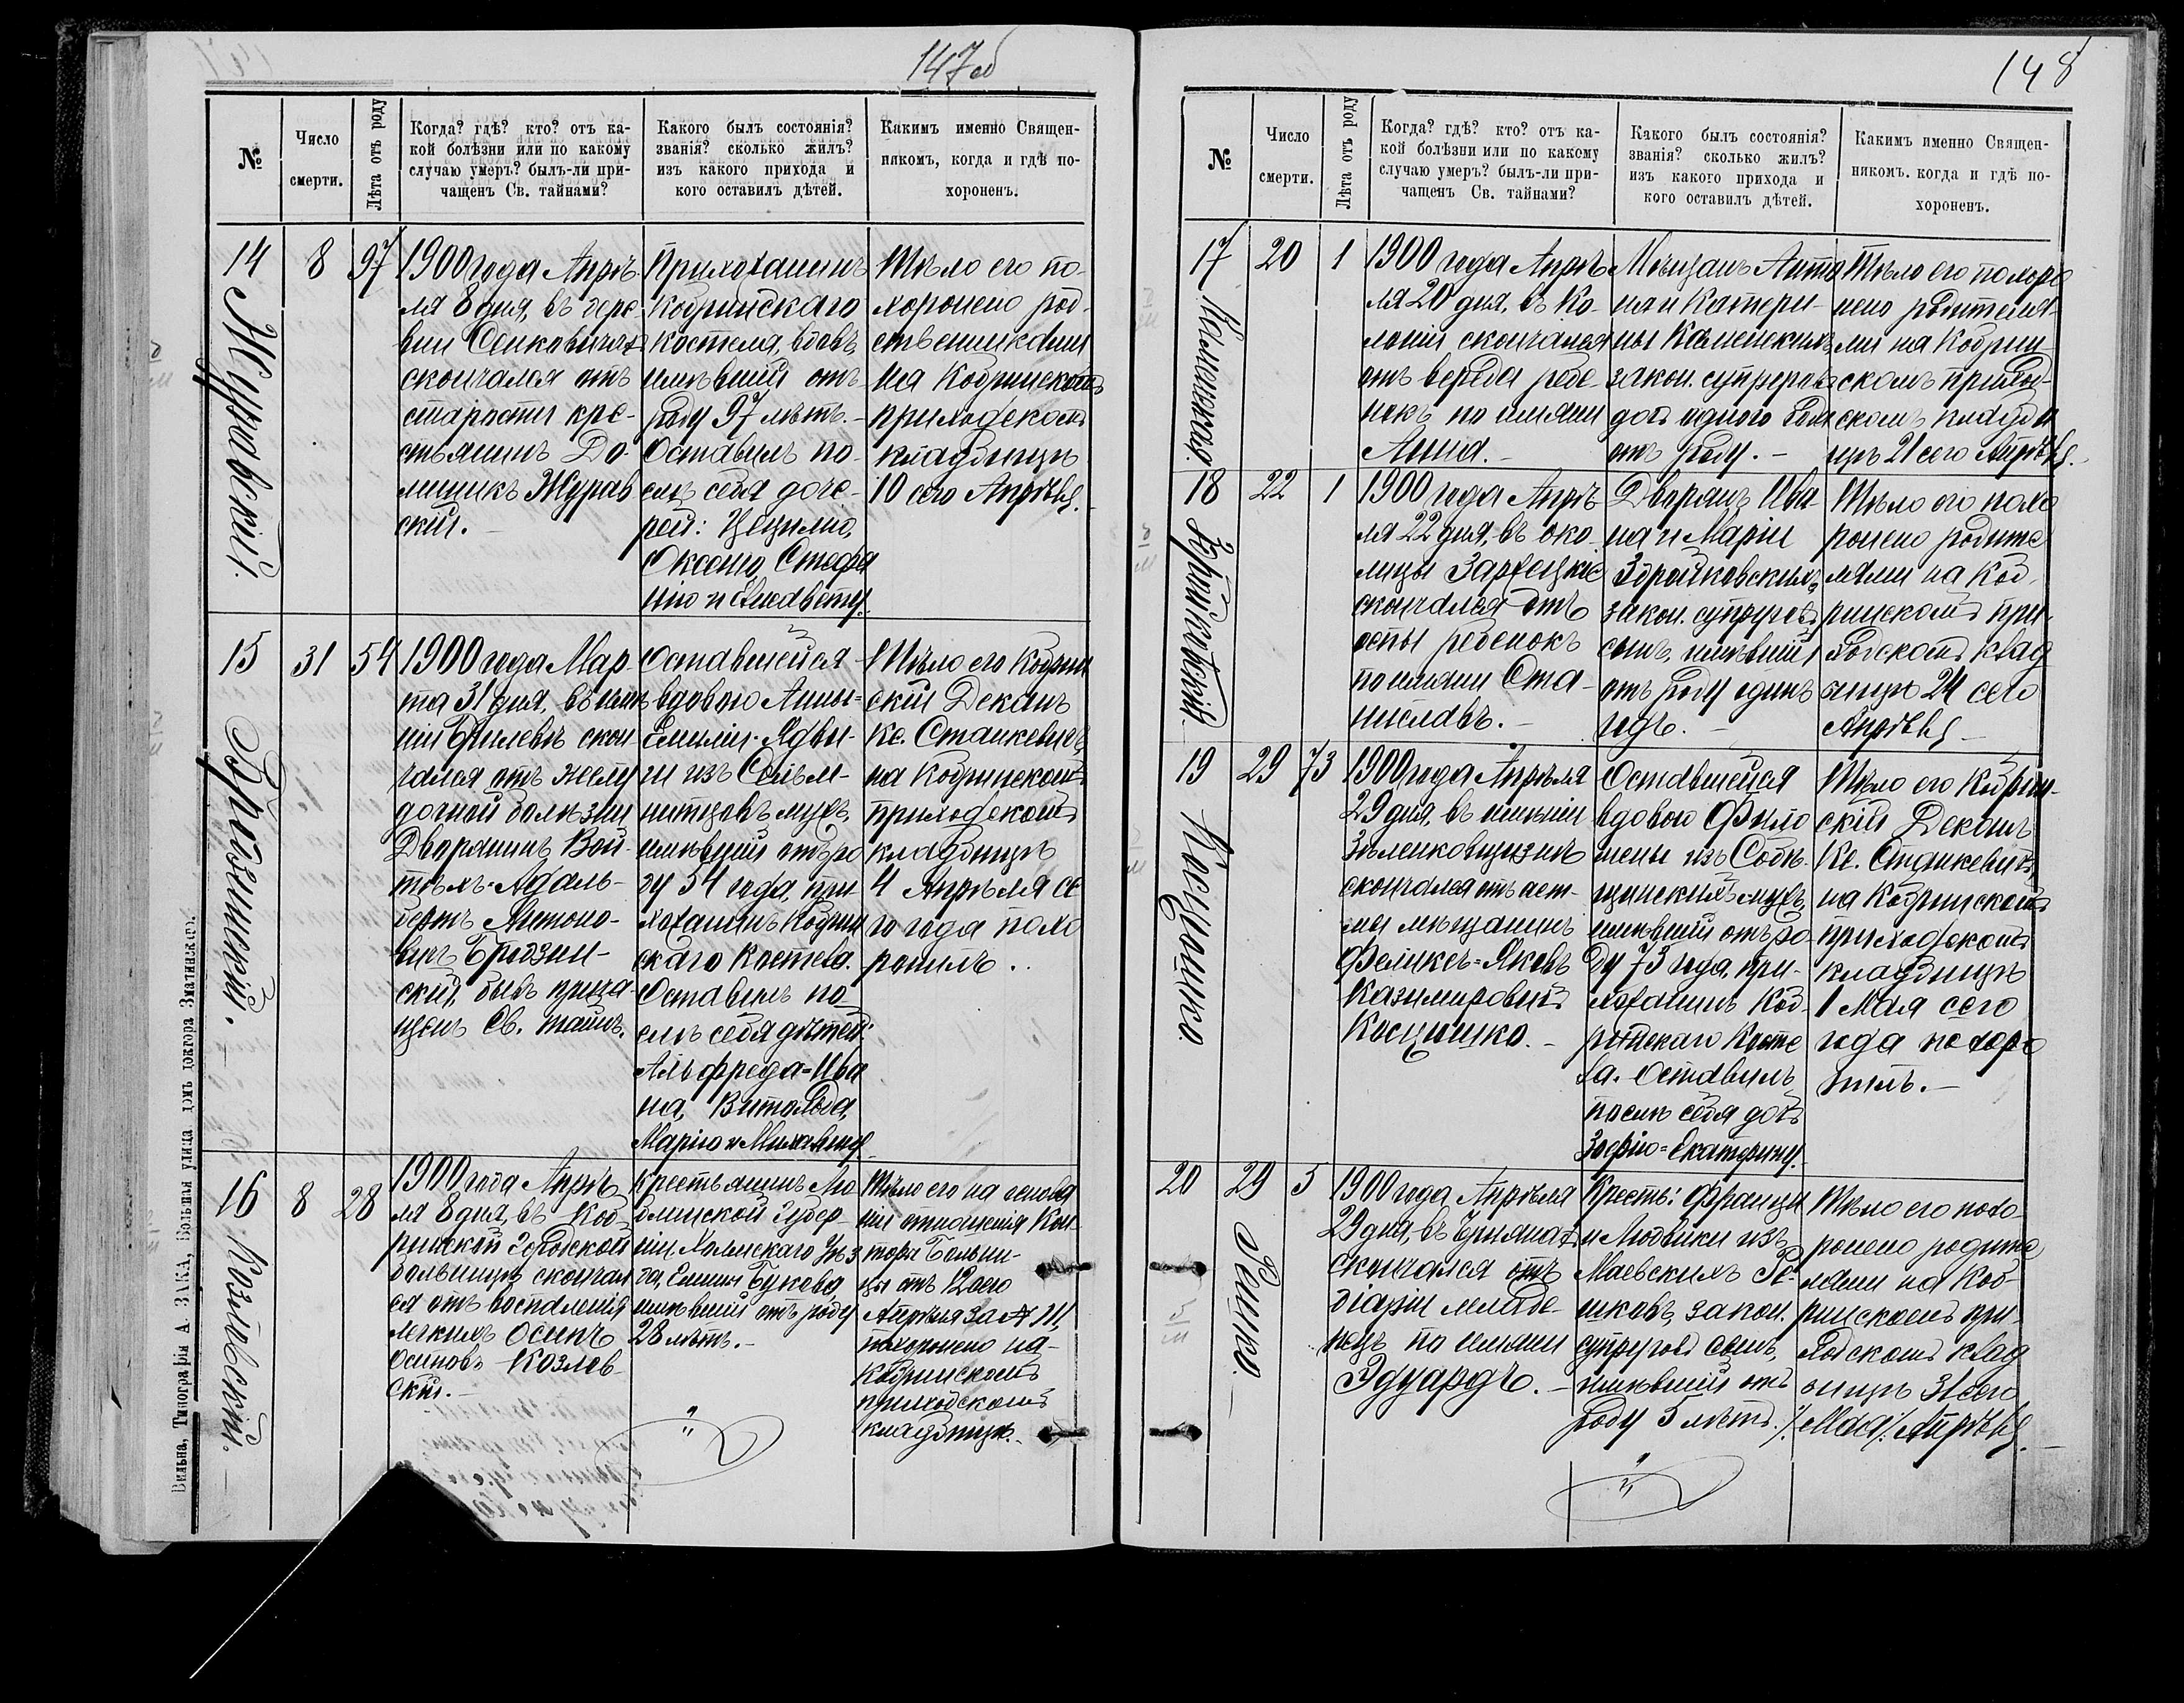 147об
№
Число
смерти.
Лѣта отъ роду
Когда? гдѣ? кто? отъ ка-
кой болѣзни или по какому
случаю умеръ? былъ-ли при-
чащенъ Св. тайнами?
Какого былъ состоянія?
званія? сколько жилъ?
изъ какого прихода и
кого оставилъ дѣтей.
Какимъ именно Священ-
никомъ, когда и гдѣ по-
хороненъ.
14
Журавскій.
8
97
1900 года Апрѣ-
ля 8 дня, въ дере
вни Сенковичах
скончался отъ
старости кре-
стьянинъ До-
миникъ Журав
скій. -
Прихожанинъ
Кобринскаго
Костела, вдовъ,
имѣвшій отъ
роду 97 лѣтъ. -
Оставилъ по-
слѣ себя доче-
рей: Цецилію,
Оксеню, Стефа
нію и Елисавету.
Тѣло его по-
хоронено род-
ственниками
на Кобринскомъ
приходскомъ
кладбищѣ
10 сего Апрѣля.
15
Бродзинскій.
31
54
1900 года Мар-
та 31 дня, въ имѣ
ніи скон
чался отъ желу
дочной болѣзни
Дворянинъ Вой-
тѣхъ-Адаль-
бертъ Антоно-
вичъ Бродзин-
скій, бывъ прича-
щенъ Св. тайнъ.
Оставшейся
вдовою Анны=
Емиліи-Ядви-
ги изъ
мужъ,
имѣвшій отъ ро
ду 54 года, при
хожанинъ Кобрин
скаго Костела.
Оставилъ по-
слѣ себя дѣтей:
Альфреда=Ива
на, Витольда,
Марію и Михалину.
Тѣло его Кобрин
скій Деканъ
Кс. Станкевичъ,
на Кобринскомъ
приходскомъ
кладбищѣ
4 Апрѣля се-
го года похо
ронилъ..
16
Козловскій.
8
28
1900 года Апрѣ
ля 8 дня, въ Коб-
ринской Городской
больницѣ скончал
ся отъ воспаленія
легкихъ Осипъ
Осиповъ Козлов-
скій. -
Крестьянинъ Лю
блинской Губер-
ніи Холмскаго Уѣз
да, Гмины Буково,
имѣвшій отъ роду
28 лѣтъ. -
Тѣло его на основа
ніи отношенія Кон-
торы Больни-
цы отъ 12 сего
Апрѣля за №
похоронено на
Кобринскомъ
приходскомъ
кладбищѣ.
Вильна, Типографія А. ЗАКА, Большая улица домъ доктора Зматинскаго.
148
№
Число
смерти.
Лѣта отъ роду
Когда? гдѣ? кто? отъ ка-
кой болѣзни или по какому
случаю умеръ? былъ-ли при-
чащенъ Св. тайнами?
Какого былъ состоянія?
званія? сколько жилъ?
изъ какого прихода и
кого оставилъ дѣтей.
Какимъ именно Священ-
никомъ. когда и гдѣ по-
хороненъ.
17
Каменская.
20
1
1900 года Апрѣ
ля 20 дня, въ Ко-
лоніи скончался
отъ вереда ребе-
нокъ по имяни
Анна. -
Мѣщанъ Анто
на и Катери-
ны Каменскихъ
закон. супруговъ
дочь одного года
отъ роду. -
Тѣло его похоро
нено родителя-
ми на Кобрин-
скомъ приход-
скомъ кладби
щѣ 21 сего Апрѣля.
18
Збройковскій.
22
1
1900 года Апрѣ
ля 22 дня, въ око-
лицы Зарѣцкіе
скончался отъ
оспы ребенокъ
по имяни Ста-
ниславъ. -
Дворянъ Ива-
на и Маріи
Збройковскихъ
закон. супруговъ
сынъ, имѣвшій
отъ роду одинъ
годъ. -
Тѣло его похо
ронено родите
лями на Коб-
ринскомъ при-
ходскомъ клад
бищѣ 24 сего
Апрѣля -
19
Косцюшко.
29
73
1900 года Апрѣля
29 дня, въ имѣніи
Зѣленковщизнѣ
скончался отъ аст-
мы мѣщанинъ
Феликсъ=Яковъ
Казимировичъ
Косцюшко. -
Оставшейся
вдовою Фило
мены изъ
мужъ,
имѣвшій отъ ро-
ду 73 года, при-
хожанинъ Коб-
ринскаго Косте
ла. Оставилъ
послѣ себя дочь
Зофію=Екатерину.
Тѣло его Кобрин-
скій Деканъ
Кс. Станкевичъ,
на Кобринскомъ
приходскомъ
кладбищѣ
1 Мая сего
года похоро
нилъ. -
20
Редько.
29
5
1900 года Апрѣля
29 дня, въ
скончался отъ
діаріи младе-
нецъ по имяни
Эдуардъ. -
Кресть: Франца
и Людвики изъ
Маевскихъ Ре-
дьковъ, закон.
супруговъ сынъ,
имѣвшій отъ
роду 5 лѣтъ.
Тѣло его похо-
ронено родите
лями на Коб-
ринскомъ при-
ходскомъ клад
бищѣ 31 сего
/.Мая/. Апрѣля. -